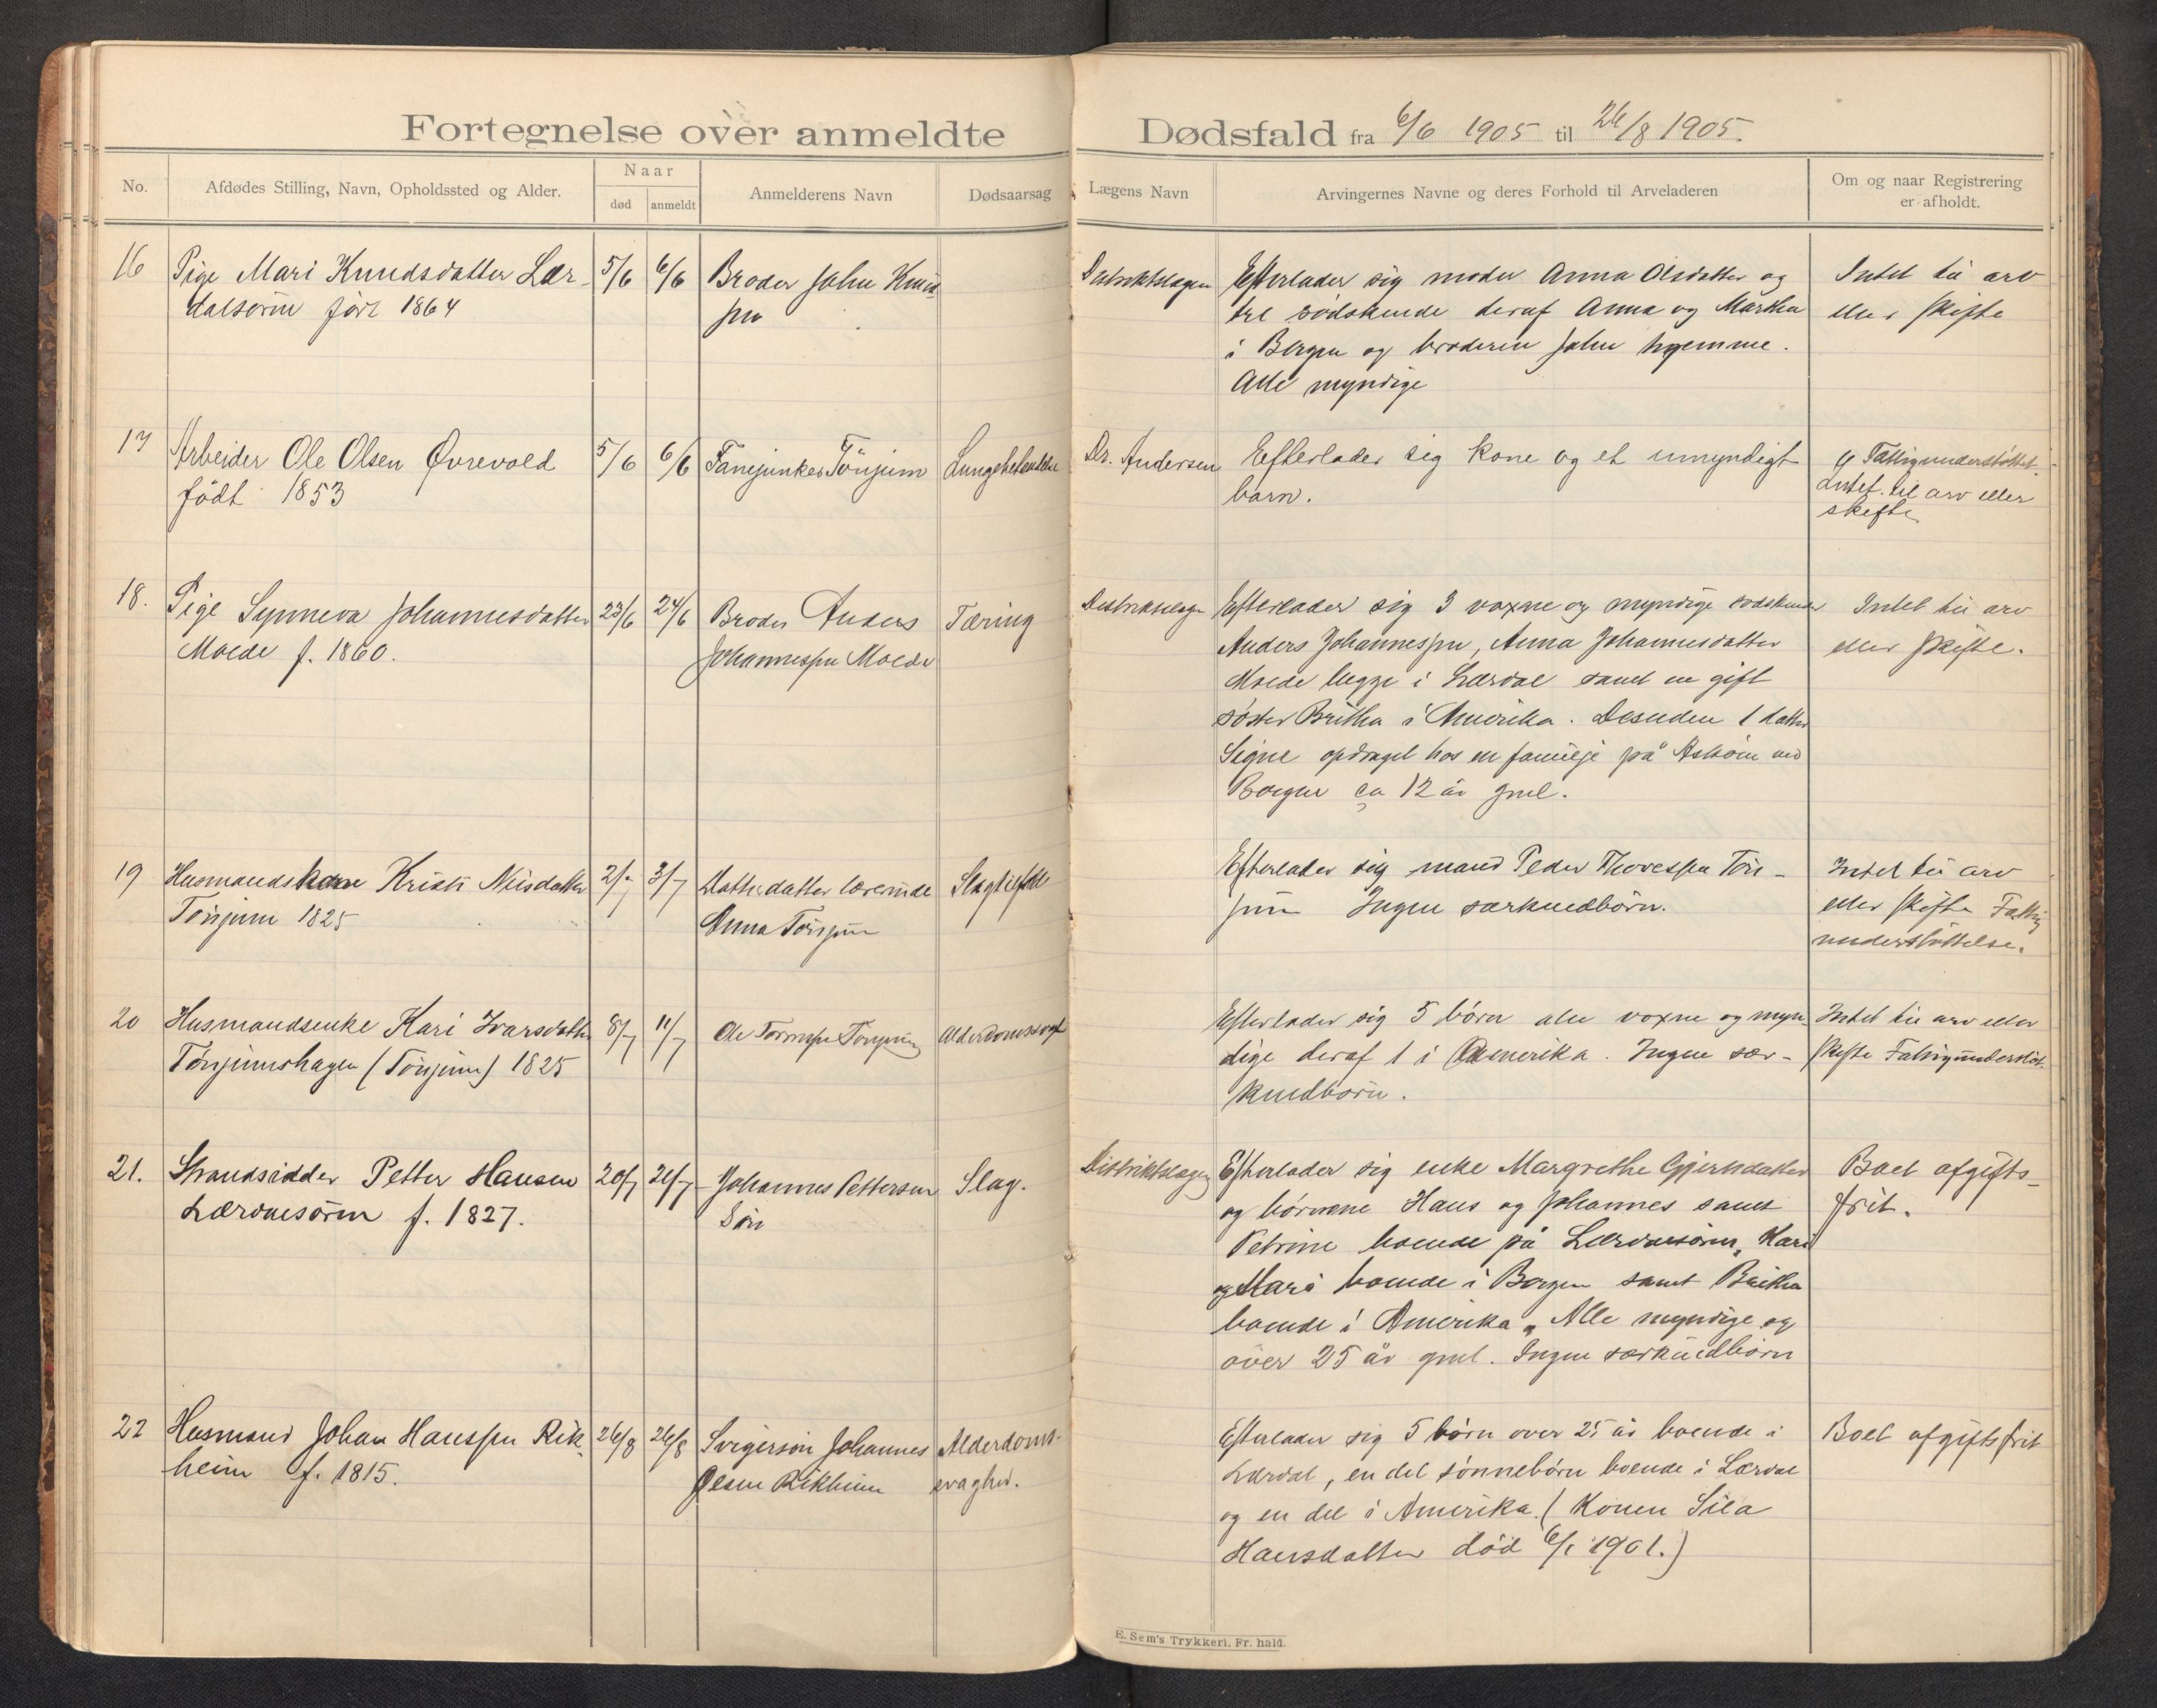 Fortegnelse over anmeldte
Dødsfald fra 6/6 1905 til 26/8 1905.
No.
Afdødes Stilling, Navn, Opholdssted og Alder.
Naar
død
anmeldt
Anmelderens Navn
Dødsaarsag
Lægens Navn
Arvingernes Navne og deres Forhold til Arveladeren
Om og naar Registrering
er afholdt.
16
Pige Mari Knudsdatter Lær-
dalsøren født 1864
5/6
6/6
Broder John Knud
sen
Distriktslægen
Efterlader sig moder Anna Olsdatter og
tre södskende deraf Anna og Martha
i Bergen og broderen John hjemme.
Alle myndige
Intet til arv
eller skifte
17
Arbeider Ole Olsen Øvrevold
født 1853
5/6
6/6
Fanejunker Tönjum
Lungebetændelse
Dr. Andersen
Efterlader sig kone og et umyndigt
barn.
Fattigunderstöttet.
Intet til arv eller
skifte
18.
Pige Synneva Johannesdatter
Molde f. 1860.
23/6
24/6
Broder Anders
Johannessen Molde
Tæring
Distriktslæge
Efterlader sig 3 voxne og myndige södskende
Anders Johannessen, Anna Johannesdatter
Molde begge i Lærdal samt en gift
søster Britha i Amerika. Desuden 1 datter
Signe opdraget hos en familje på Askøen ved
Bergen ca 12 år gml.
Intet til arv
eller skifte.
19
Husmandskone Kristi Nilsdatter
Tönjum 1825
2/7
3/7
Datterdatter lærerinde
Anna Tönjum
Slagtilfælde
Efterlader sig mand Peder Thoressen Tön-
jum Ingen særkuldbörn.
Intet til arv
eller skifte Fattig
understöttelse.
20
Husmandsenke Kari Ivarsdatter
Tönjumshagen (Tönjum) 1825
8/7
11/7
Ole Tönjum
Alderdomssvagh
Efterlader sig 5 börn alle voxne og myn-
dige deraf 1 i Amerika. Ingen sær-
kuldbörn.
Intet til arv eller
skifte Fattigunderstöt.
21.
Strandsidder Petter Hansen
Lærdalsören f. 1827.
20/7
21/7
Johannes Pettersen
Sön
Slag.
Distriktslægen
Efterlader sig enke Margrethe Gjertsdatter
og börnene Hans og Johannes samt
Petrine boende på Lærdalsören, Kari
og Mari boende i Bergen samt Britha
boende i Amerika. Alle myndige og
over 25 år gml. Ingen særkuldbörn
Boet afgifts-
frit.
22
Husmand Johan Hanssen Rik-
heim f. 1815.
26/8
26/8
Svigersön Johannes
Olsen Rikheim
Alderdoms-
svaghed.
Efterlader sig 5 börn over 25 år boende i
Lærdal, en del sönnebörn boende i Lærdal
og en del i Amerika. (Konen Sila
Hansdatter död 6/1 1901.)
Boet afgiftsfrit
E. Sem's Trykkeri, Fr. hald.